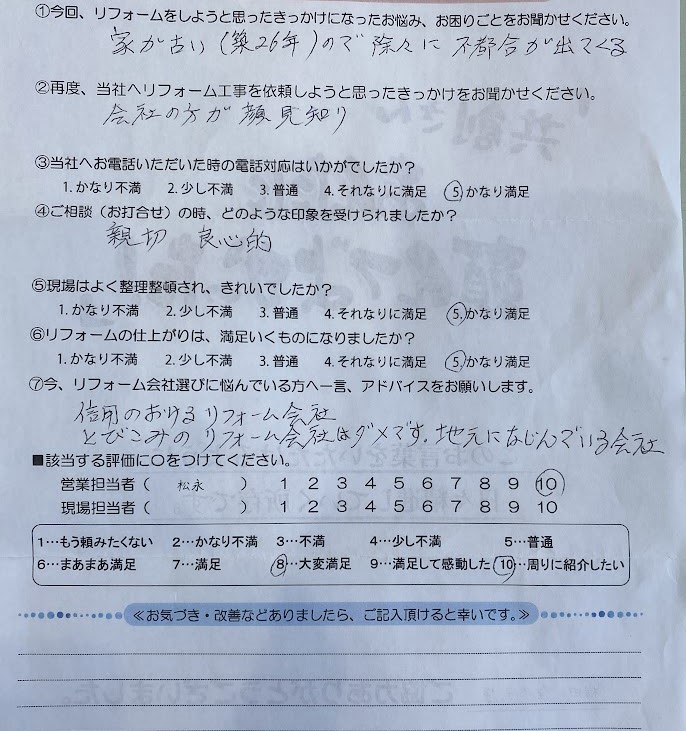 ①今回、リフォームをしようと思ったきっかけになったお悩み、お困りごとをお聞かせください。
家が古い(築26年)ので除々に不都合が出てくる
②再度、当社へリフォーム工事を依頼しようと思ったきっかけをお聞かせください。
会社の方が顔見知り
③当社へお電話いただいた時の電話対応はいかがでしたか?
1.かなり不満 2.少し不満 3.普通 4.それなりに満足 5.かなり満足
④ご相談(お打合せ)の時、どのような印象を受けられましたか?
親切 良心的
⑤現場はよく整理整頓され、きれいでしたか?
1.かなり不満 2.少し不満 3.普通 4.それなりに満足 5.かなり満足
⑥リフォームの仕上がりは、満足いくものになりましたか?
1.かなり不満 2.少し不満 3.普通 4.それなりに満足 5.かなり満足
⑦今、リフォーム会社選びに悩んでいる方へ一言、アドバイスをお願いします。
信用のおけるリフォーム会社
とびこみのリフォーム会社はダメです。地元になじんでいる会社
■該当する評価に○をつけてください。
営業担当者( 松永 ) 1 2 3 4 5 6 7 8 9 10
現場担当者( ) 1 2 3 4 5 6 7 8 9 10
1…もう頼みたくない 2…かなり不満 3…不満 4…少し不満 5…普通
6…まあまあ満足 7…満足 8…大変満足 9…満足して感動した 10…周りに紹介したい
≪お気づき・改善などありましたら、ご記入頂けると幸いです。≫